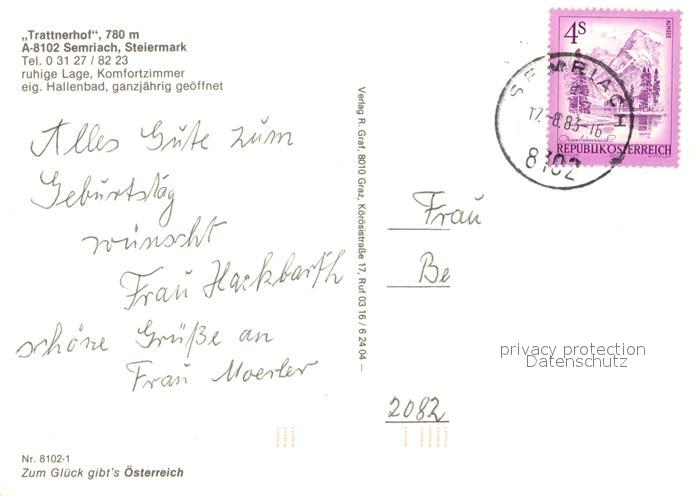 „Trattnerhof“, 780 m
A-8102 Semriach, Steiermark
Tel. 0 31 27 / 82 23
ruhige Lage, Komfortzimmer
eig. Hallenbad, ganzjährig geöffnet
Alles Gute zum
Geburtstag
wünscht
Frau Hackbarth
schöne Grüße an
Frau Moerler
Nr. 8102-1
Zum Glück gibt's Österreich
Verlag R. Graf, 8010 Graz, Körösistraße 17, Ruf 03 16 / 6 24 04 —
4S
ALMSEE
REPUBLIK ÖSTERREICH
SEMRIACH
17.-8.83-16
8102
Frau
Be
privacy protection
Datenschutz
2082